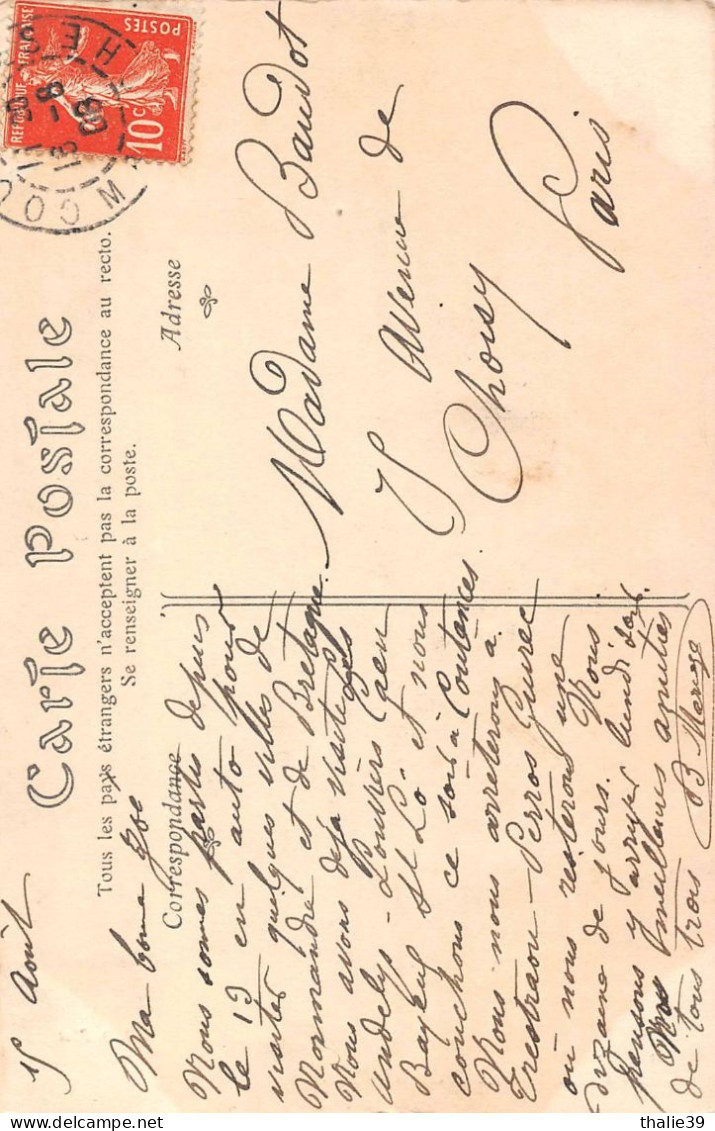 Carte Postale
Tous les pays étrangers n'acceptent pas la correspondance au recto.
Se renseigner à la poste.
Correspondance
Adresse
REPUBLIQUE FRANÇAISE
POSTES
10c
15 Août
Ma bonne Zoé
Nous sommes partis depuis
le 13 en auto pour
visiter quelques villes de
Normandie et de Bretagne.
Nous avons déjà visité Les
Andelys - Louviers Caen
Bayeux St Lô et nous
couchons ce soir à Coutances.
Nous nous arreterons à
Trestraou - Perros Guirec
où nous resterons une
dizaine de jours. Nous
pensons y arriver lundi soir.
Nos meilleures amitiés
de tous trois
Madame Baudot
Avenue de
Choisy
Paris
thalie39
delcampe.net